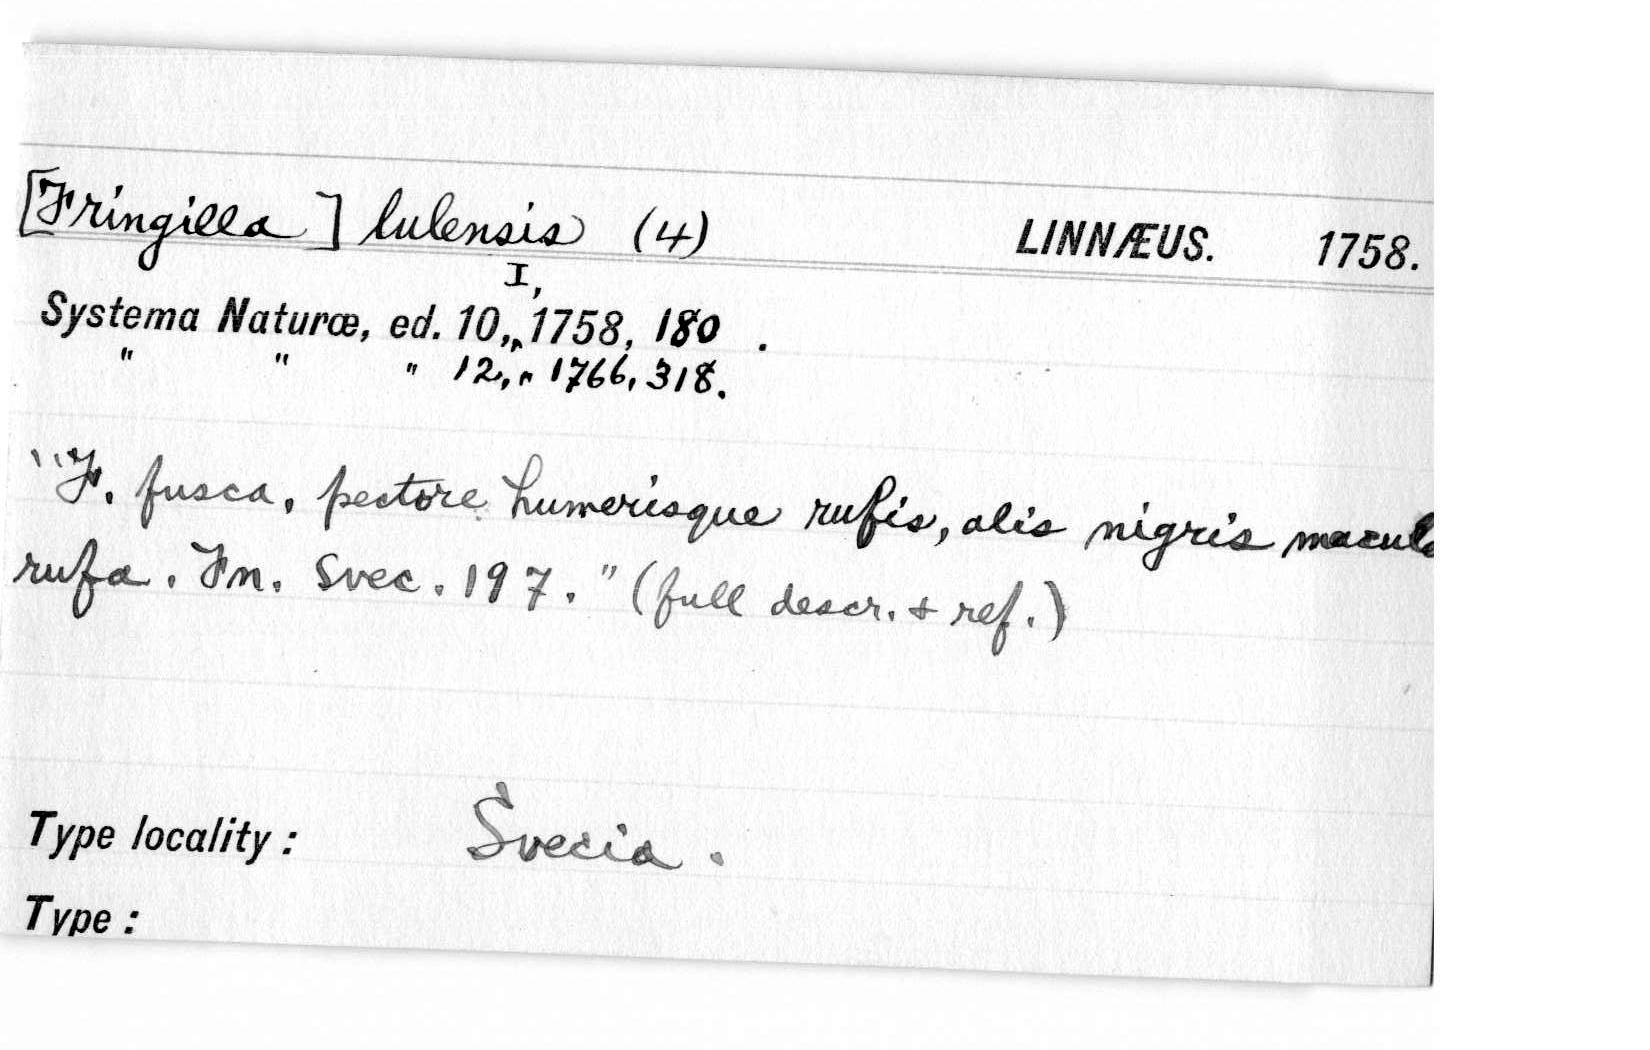 [Fringilla] lulensis (4) LINNÆUS. 1758.
I,
Systema Naturæ, ed. 10, 1758, 180 .
" " " 12, " 1766, 318.
"F. fusca, pectore humerisque rufis, alis nigris macula
rufa. Fn. Svec. 197." (full descr. + ref.)
Type locality: Svecia.
Type: